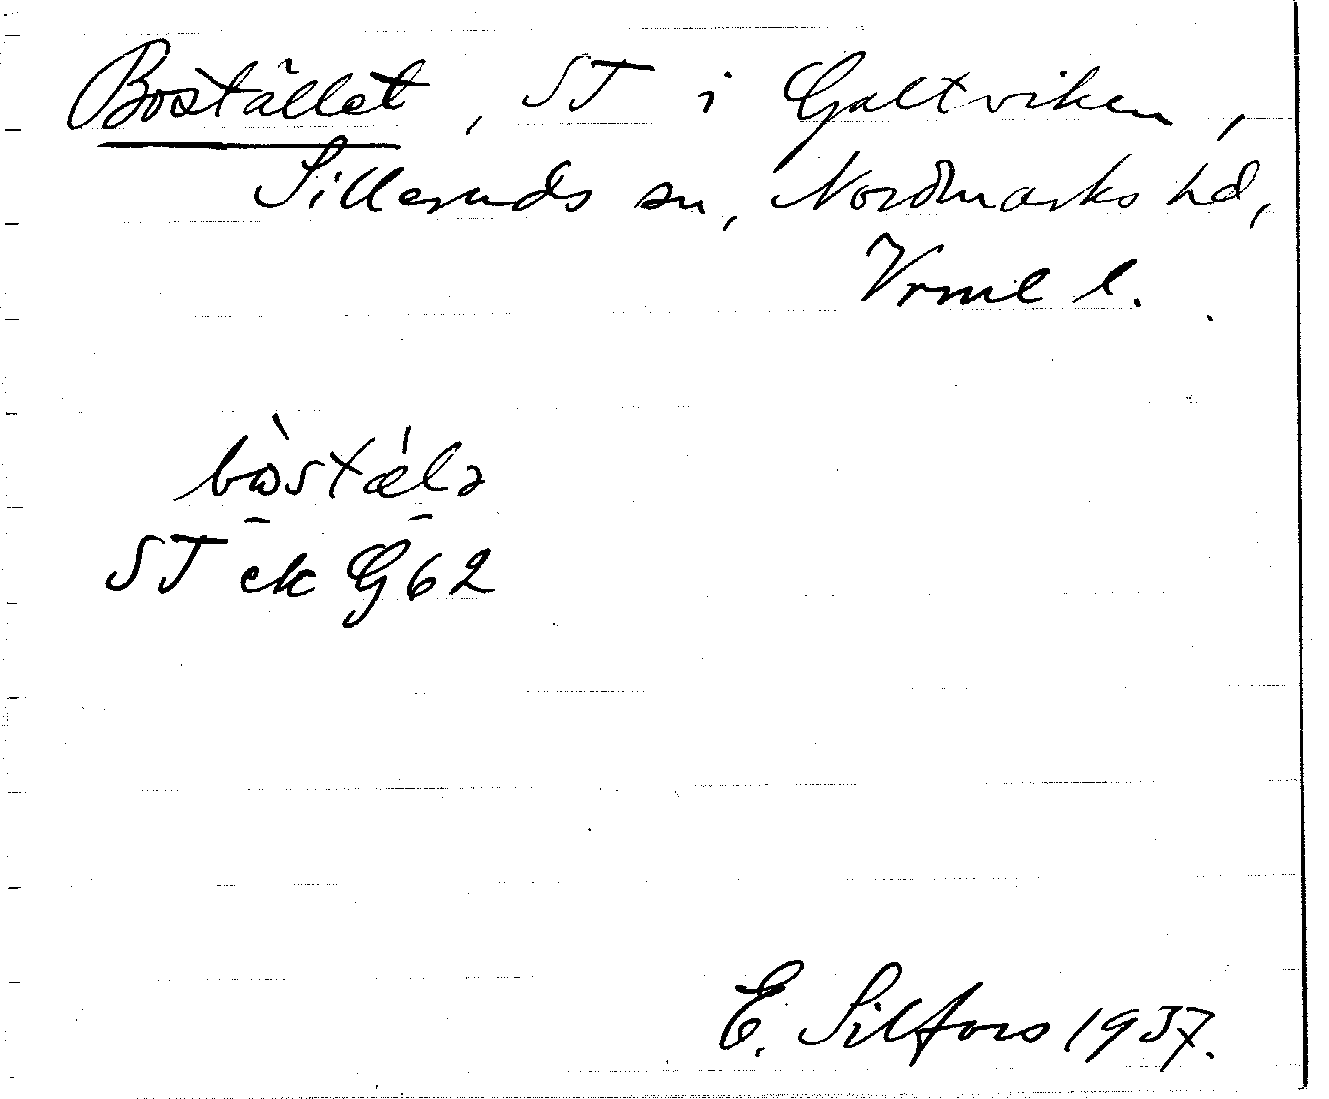 Bostället, ST i Galtviken,
Silleruds sn, Nordmarks hd,
Vrml l.
bòstǽlə
ST ek G62
E. Silfors 1937.